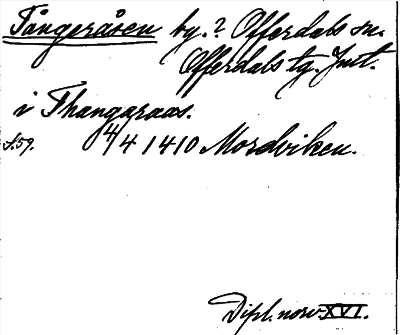 Tångeråsen by.? Offerdals sn.
Offerdals tg. Jmtl.
i Thangaraas.
s. 59. 4/4 1410 Mordviken.
Dipl. norv. XVI.